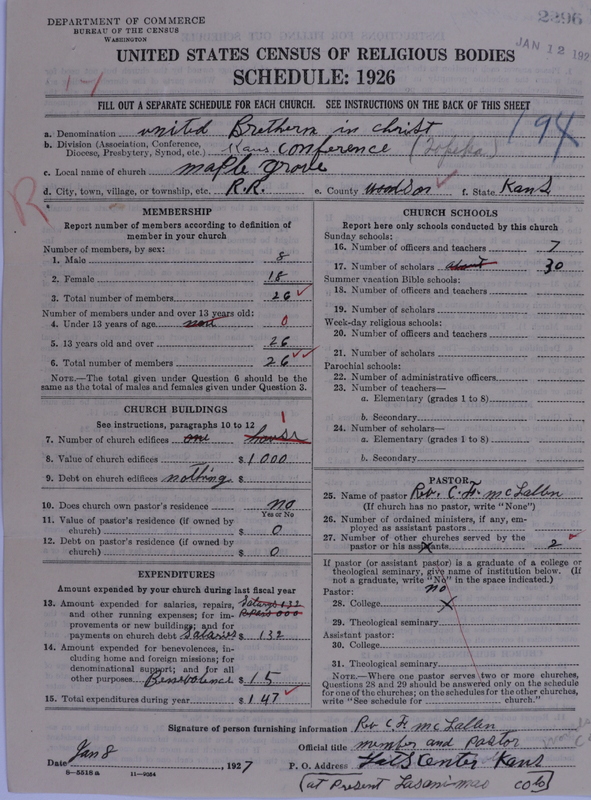 DEPARTMENT OF COMMERCE
BUREAU OF THE CENSUS
WASHINGTON
2396
JAN 12 192
UNITED STATES CENSUS OF RELIGIOUS BODIES
SCHEDULE: 1926
1-1
FILL OUT A SEPARATE SCHEDULE FOR EACH CHURCH. SEE INSTRUCTIONS ON THE BACK OF THIS SHEET
a. Denomination united Brethern in christ
194
b. Division (Association, Conference, Diocese, Presbytery, Synod, etc.) Kans. conference (Topeka)
c. Local name of church maple grove
d. City, town, village, or township, etc. R.R. e. County woodson f. State Kans
R
MEMBERSHIP
Report number of members according to definition of
member in your church
Number of members, by sex:
1. Male 8
2. Female 18
3. Total number of members 26
Number of members under and over 13 years old:
4. Under 13 years of age 0
5. 13 years old and over 26
6. Total number of members 26
NOTE.—The total given under Question 6 should be the
same as the total of males and females given under Question 3.
CHURCH BUILDINGS
See instructions, paragraphs 10 to 12
1
7. Number of church edifices one house
8. Value of church edifices $ 1000
9. Debt on church edifices nothing $
10. Does church own pastor's residence no
Yes or No
11. Value of pastor's residence (if owned by
church) $ 0
12. Debt on pastor's residence (if owned by
church) $ 0
EXPENDITURES
Amount expended by your church during last fiscal year
13. Amount expended for salaries, repairs, Salarys 132
and other running expenses; for im- Repairs 000
provements or new buildings; and for
payments on church debt Salaries $ 132
14. Amount expended for benevolences, in-
cluding home and foreign missions; for
denominational support; and for all
other purposes Benevolence $ 15
15. Total expenditures during year $ 147
CHURCH SCHOOLS
Report here only schools conducted by this church
Sunday schools:
16. Number of officers and teachers 7
17. Number of scholars about 30
Summer vacation Bible schools:
18. Number of officers and teachers
19. Number of scholars
Week-day religious schools:
20. Number of officers and teachers
21. Number of scholars
Parochial schools:
22. Number of administrative officers
23. Number of teachers—
a. Elementary (grades 1 to 8)
b. Secondary
24. Number of scholars—
a. Elementary (grades 1 to 8)
b. Secondary
PASTOR
25. Name of pastor Rev. C. F. McLallen
(If church has no pastor, write "None")
26. Number of ordained ministers, if any, em-
ployed as assistant pastors
27. Number of other churches served by the
pastor or his assistants 2
If pastor (or assistant pastor) is a graduate of a college or
theological seminary, give name of institution below. (If
not a graduate, write "No" in the space indicated.)
Pastor: no
28. College X
29. Theological seminary
Assistant pastor:
30. College
31. Theological seminary
NOTE.—Where one pastor serves two or more churches,
Questions 28 and 29 should be answered only on the schedule
for one of the churches; on the schedules for the other churches,
write "See schedule for church."
Signature of person furnishing information Rev C F McLallen
Official title member and pastor
Date Jan 8, 1927 P. O. Address Yates Center Kans
8—5518 a 11—9264
(at Present Colo)